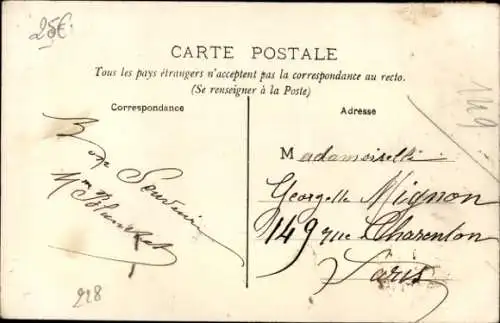 25€
CARTE POSTALE
Tous les pays étrangers n'acceptent pas la correspondance au recto.
(Se renseigner à la Poste)
Correspondance
Adresse
149
Bons
Souvenir
Mme
Madamoiselle
Georgette Mignon
149 rue Charenton
Paris
228